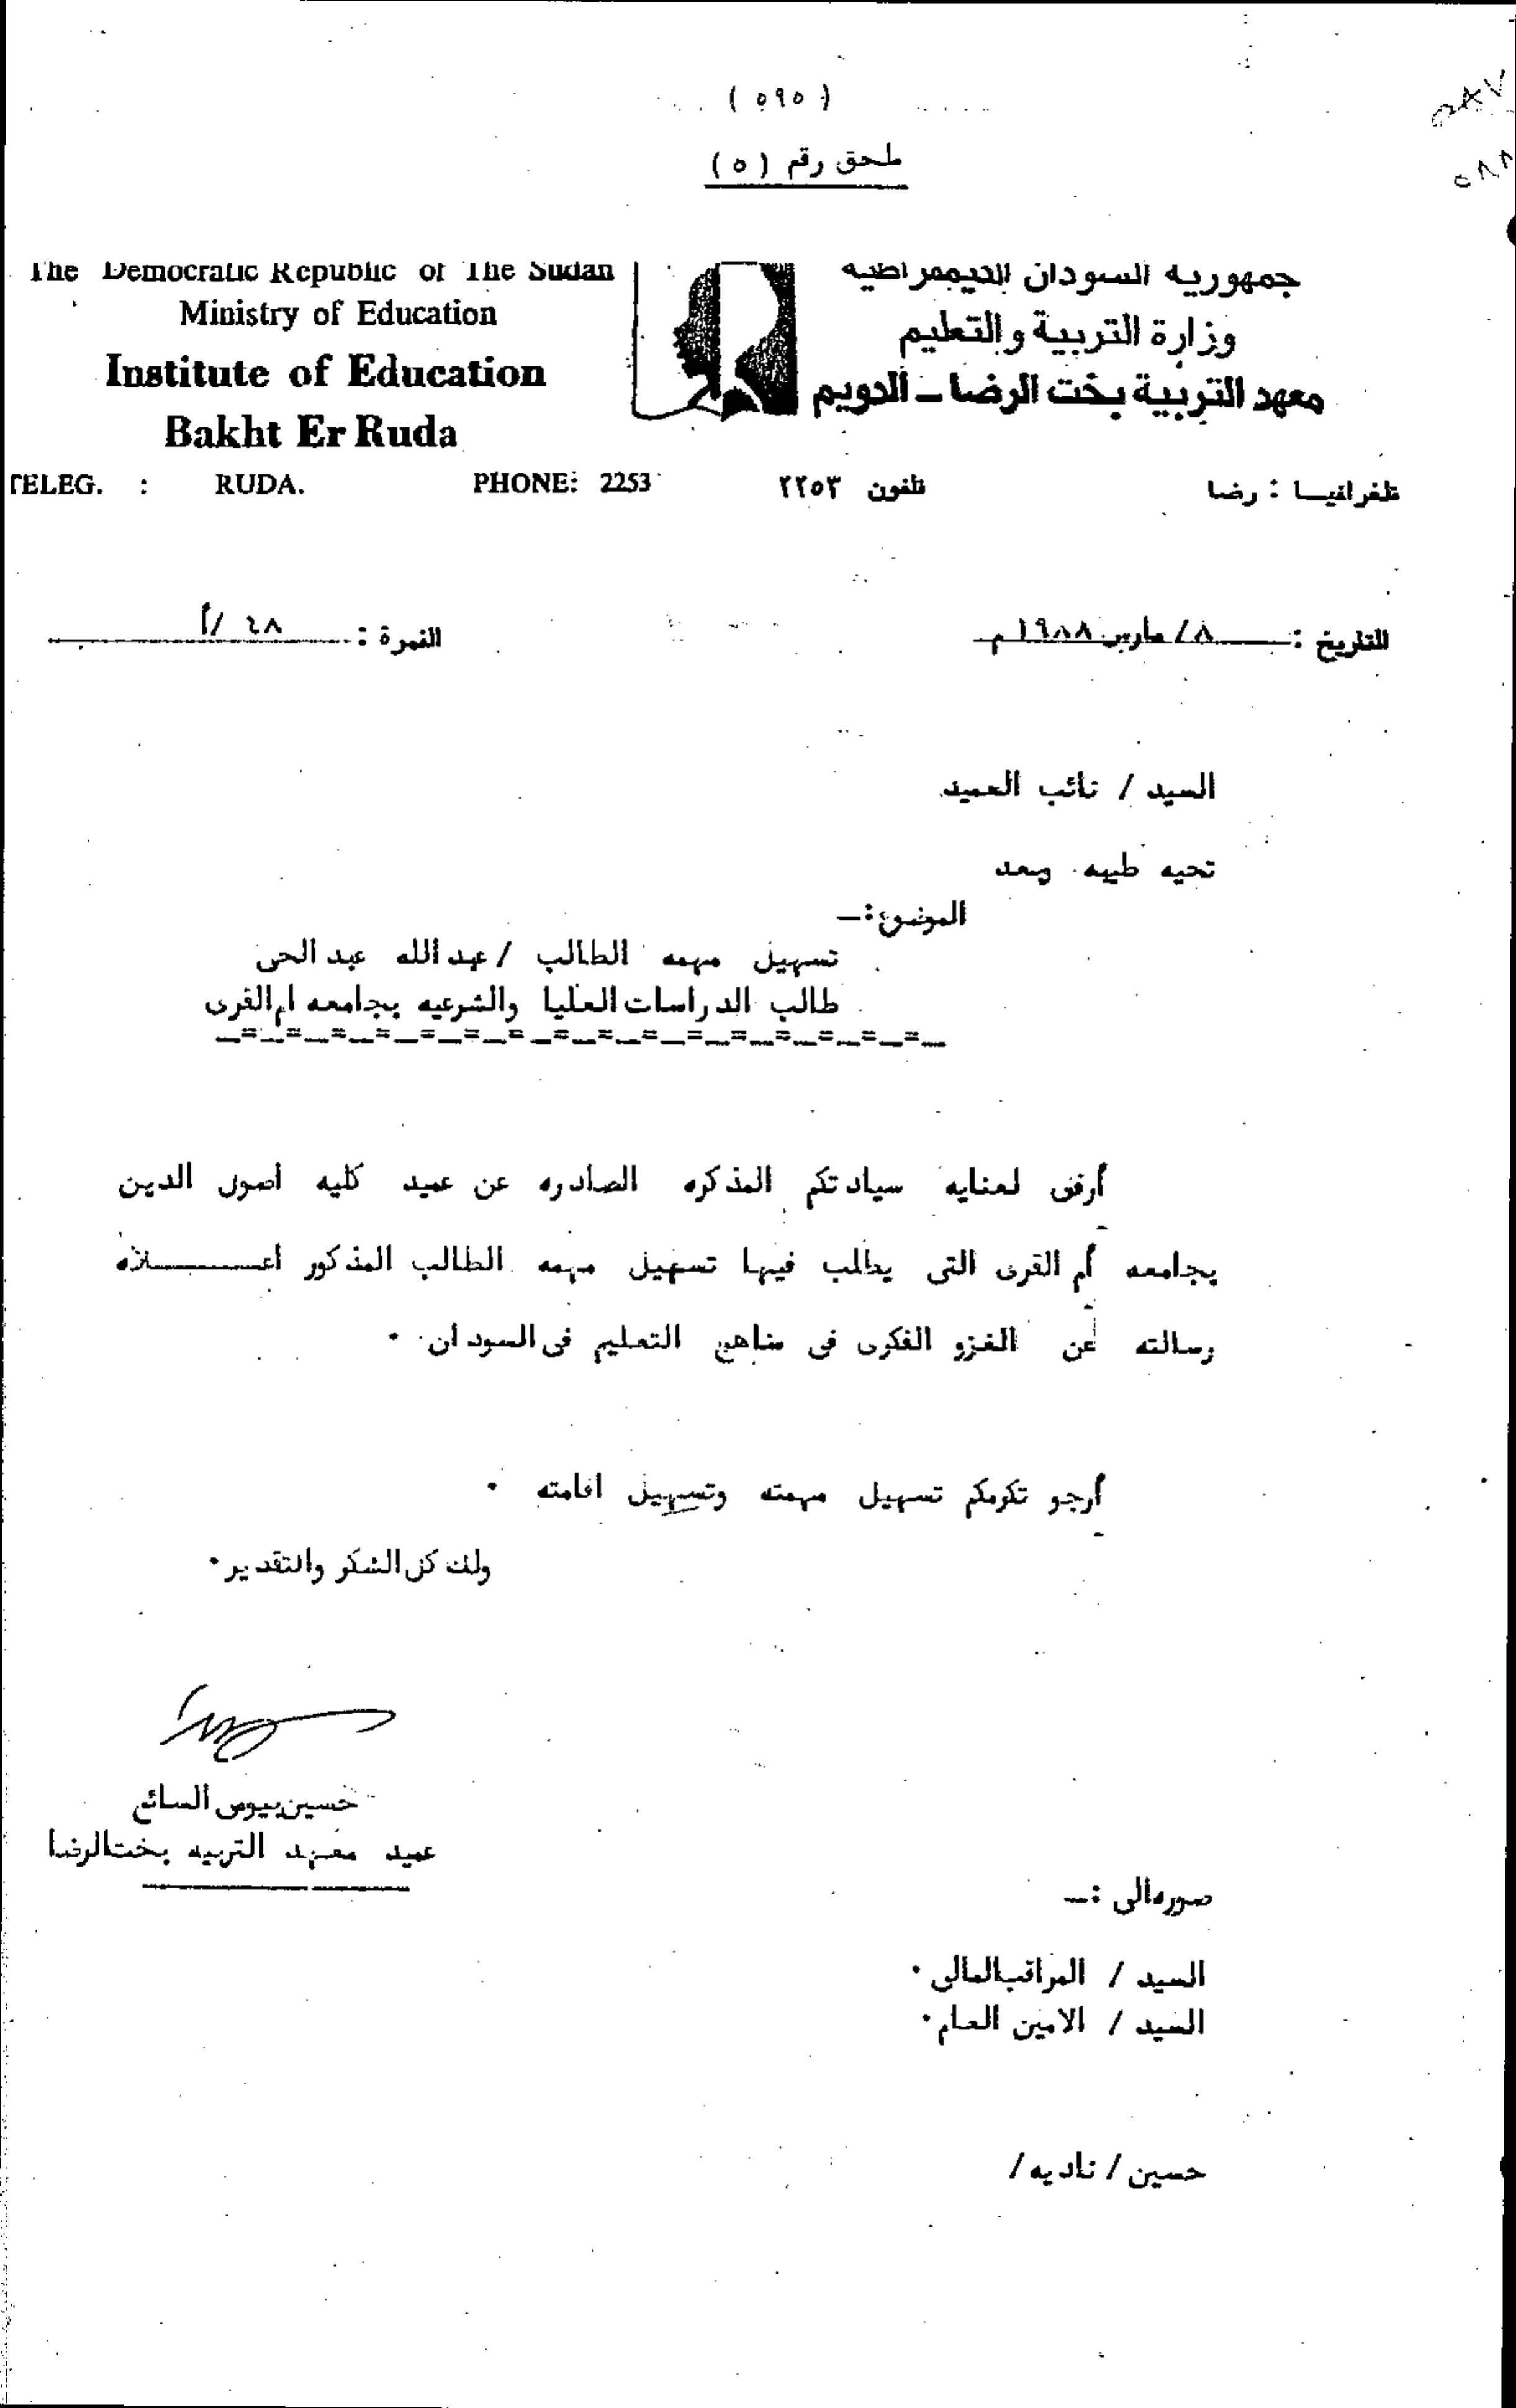 ( ٥٩٥ )
ملحق رقم ( ٥ )
٥٨٧
٥٨٨
The Democratic Republic of The Sudan
Ministry of Education
Institute of Education
Bakht Er Ruda
جمهورية السودان الديمقراطية
وزارة التربية والتعليم
معهد التربية بخت الرضا ــ الدويم
TELEG. : RUDA. PHONE: 2253
تلفون ٢٢٥٣
تلغرافيا : رضا
التاريخ : ٨/ مارس ١٩٨٨م
النمرة : ٤٨ /أ
السيد / نائب العميد
تحيه طيبه وبعد
الموضوع :ــ
تسهيل مهمه الطالب / عبد الله عبد الحى
طالب الدراسات العليا والشرعيه بجامعه ام القرى
أرفق لعنايه سيادتكم المذكره الصادره عن عميد كليه اصول الدين
بجامعه أم القرى التى يطلب فيها تسهيل مهمه الطالب المذكور اعـــــلاه
رسالته عن الغزو الفكرى فى مناهج التعليم فى السودان ٠
أرجو تكرمكم تسهيل مهمته وتسهيل اقامته ٠
ولك كل الشكر والتقدير ٠
حسين السائح
عميد معهد التربيه بخت الرضا
صوره الى :ــ
السيد / المراقب المالى ٠
السيد / الامين العام ٠
حسين / ناديه /